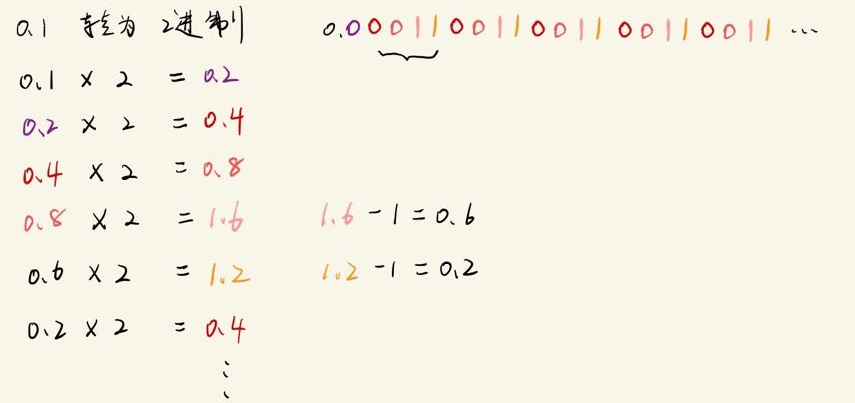 0.1 转为 2进制 0.000110011001100110011 ...
0.1 × 2 = 0.2
0.2 × 2 = 0.4
0.4 × 2 = 0.8
0.8 × 2 = 1.6 1.6 - 1 = 0.6
0.6 × 2 = 1.2 1.2 - 1 = 0.2
0.2 × 2 = 0.4
⋮